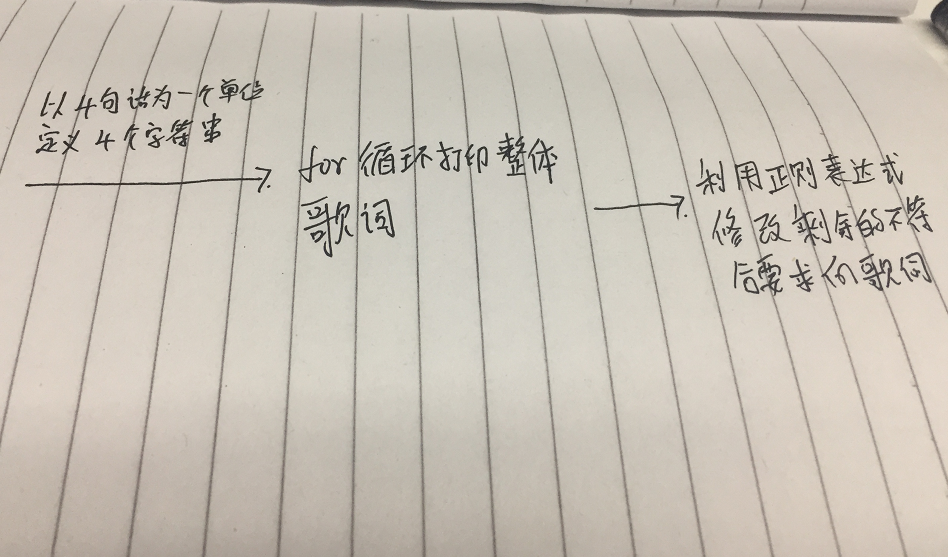 以4句话为一个单位
定义4个字符串
for循环打印整体
歌词
利用正则表达式
修改剩余的不符
合要求的歌词